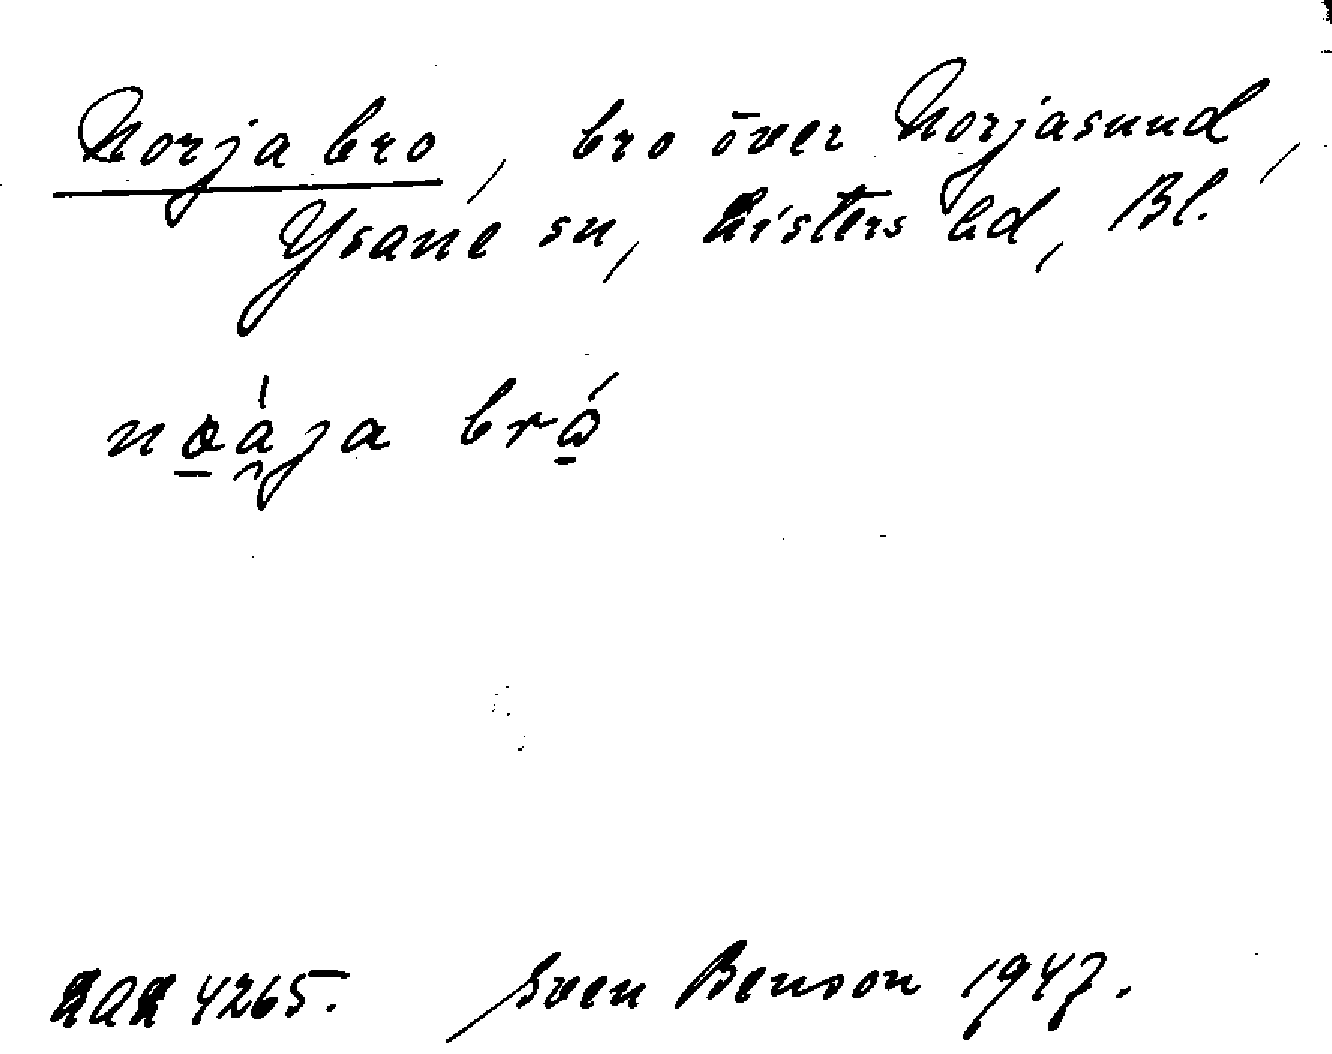 Norja bro, bro över Norjasund,
Ysane sn, Listers hd, Bl.
noája bró
4265. Sven Benson 1947.